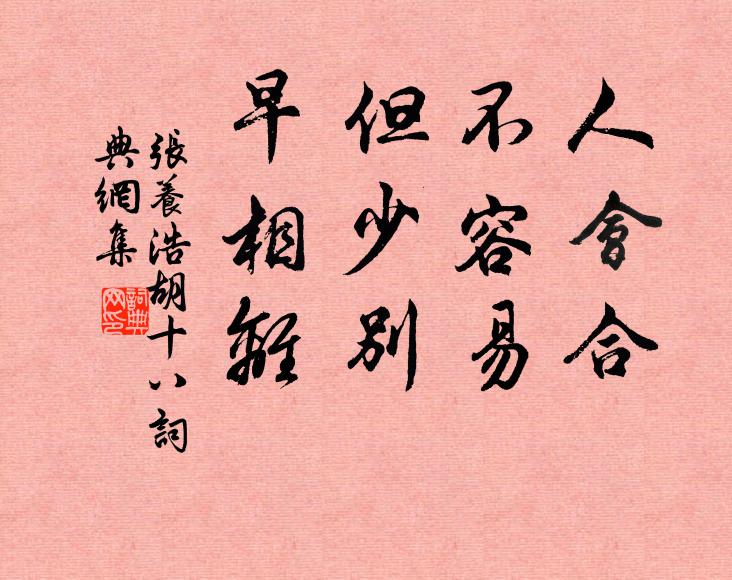 人會合
不容易
但少別
早相離
張養浩胡十八詞
典網集
詞典
网印